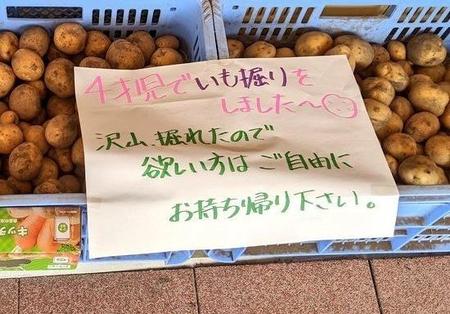 4才児でいも掘りを
しました〜
沢山、掘れたので
欲しい方は ご自由に
お持ち帰り下さい。
キッチ